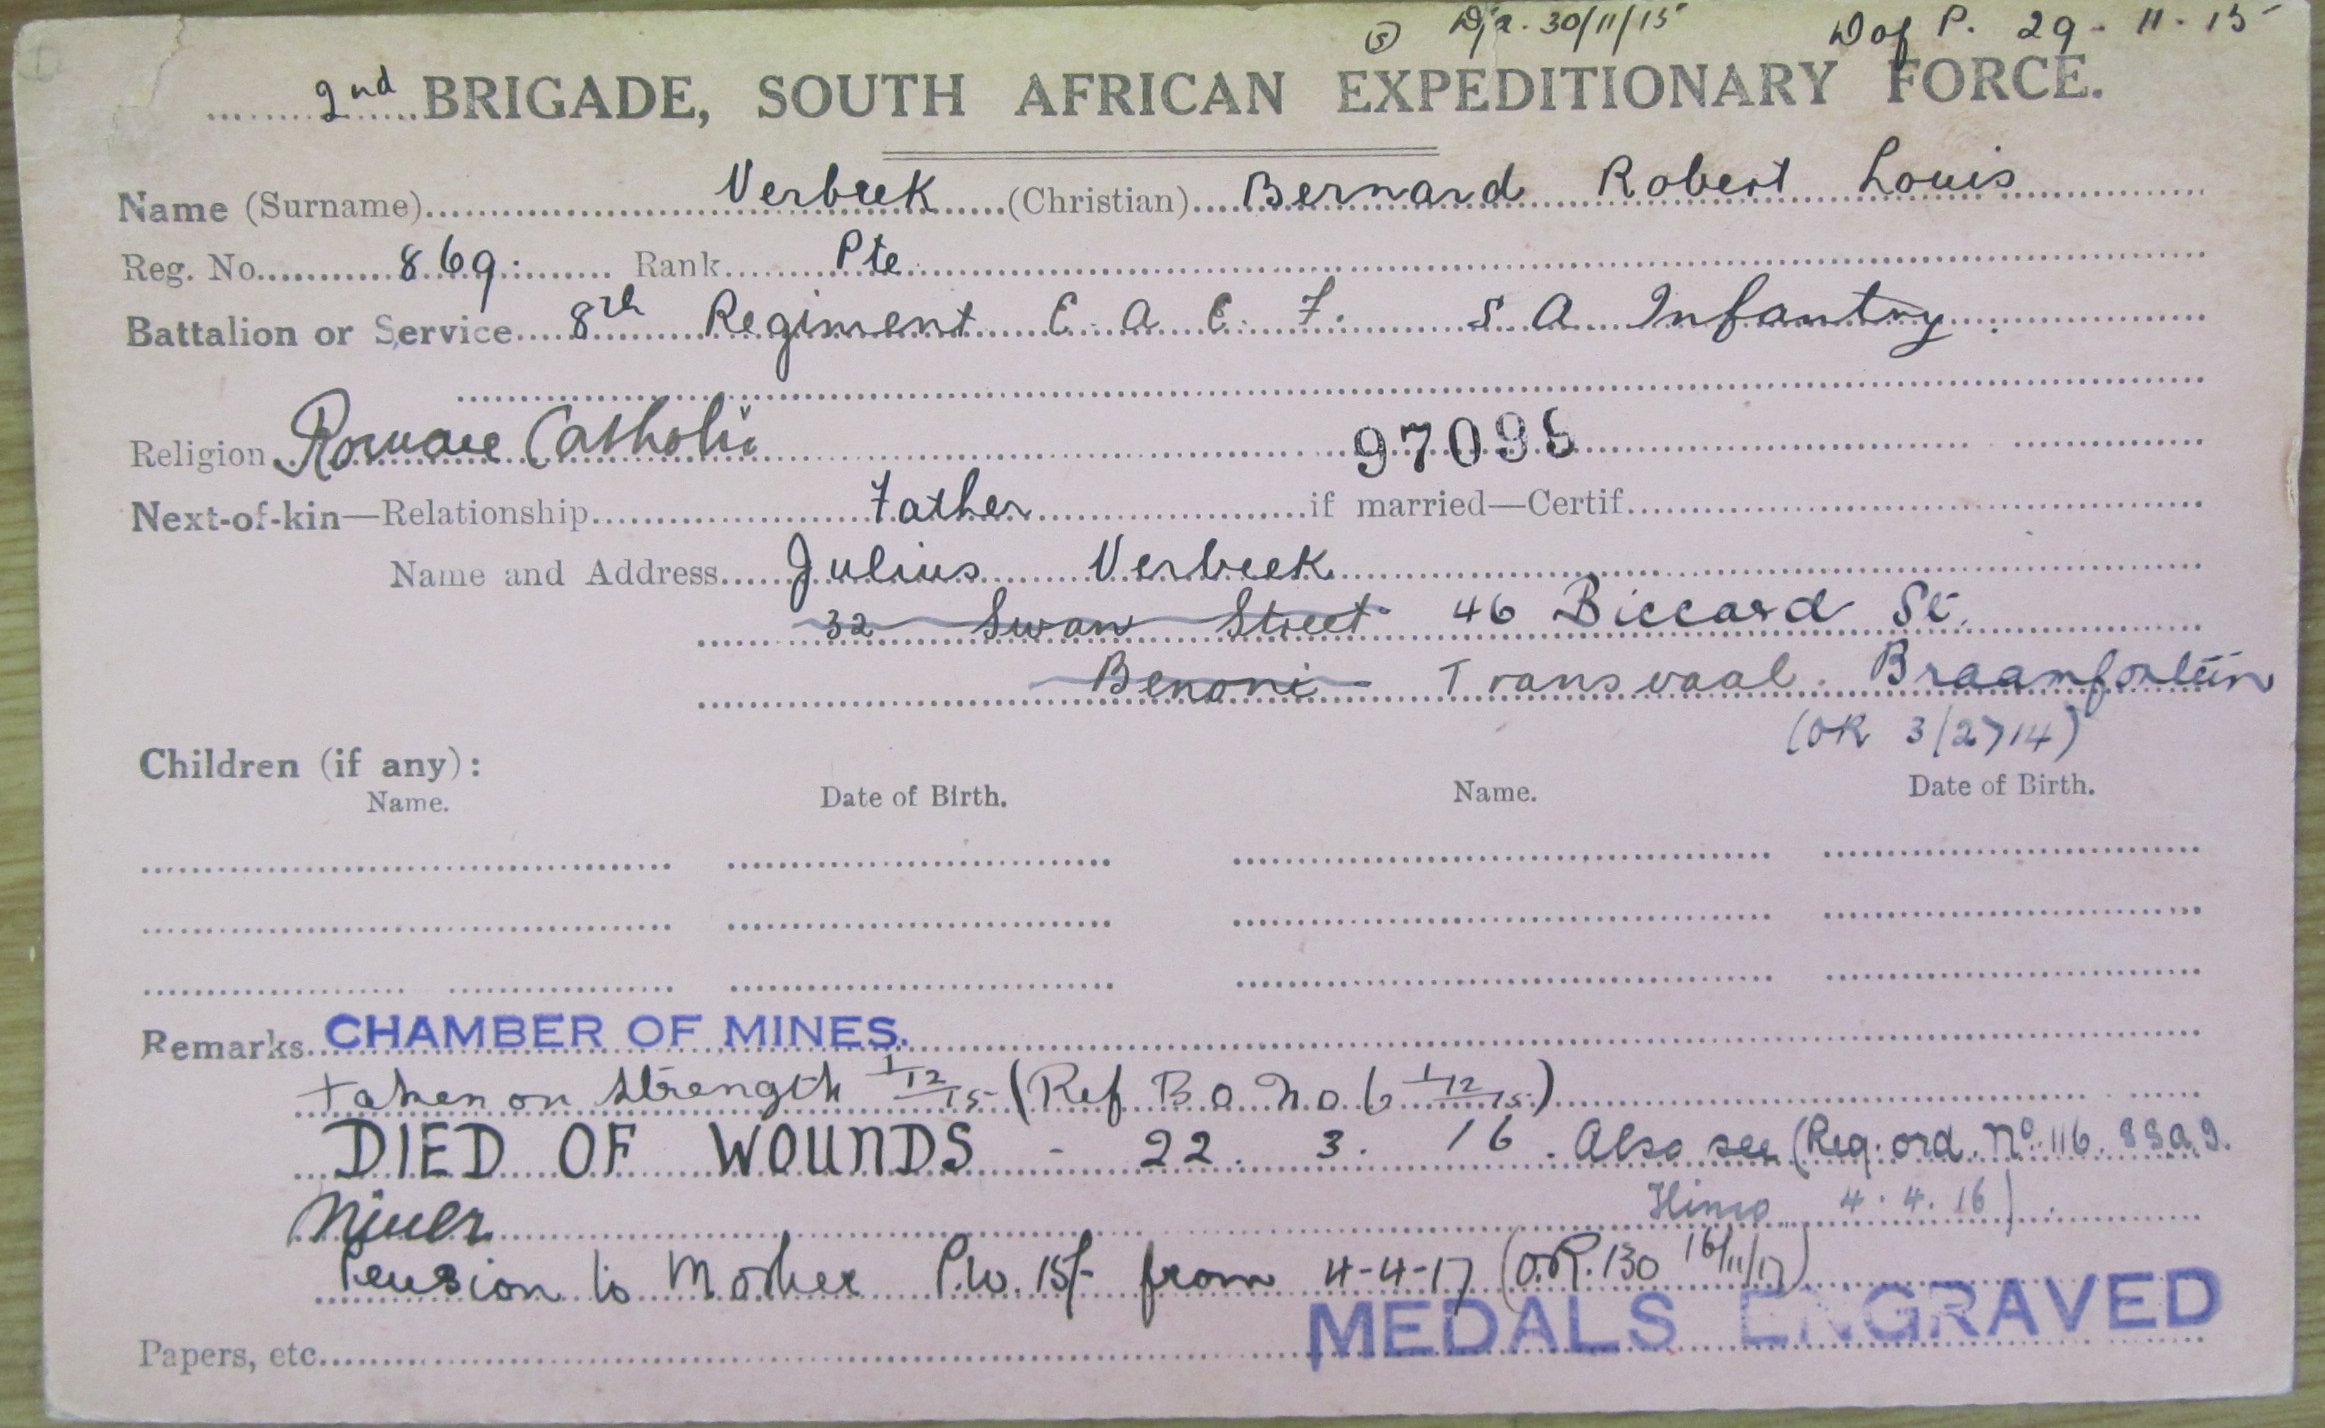 ⑤ D/a. 30/11/15 D of P. 29-11-15
2nd BRIGADE, SOUTH AFRICAN EXPEDITIONARY FORCE.
Name (Surname) Verbeek (Christian) Bernard Robert Louis
Reg. No. 869. Rank Pte
Battalion or Service 8th Regiment E. A. E. F. S A Infantry.
Religion Roman Catholic 97095
Next-of-kin—Relationship Father if married—Certif.
Name and Address Julius Verbeek
32 Swan Street 46 Biccard St.
Benoni Transvaal. Braamfontein
(OR 3/2714)
Children (if any):
Name. Date of Birth. Name. Date of Birth.
Remarks. CHAMBER OF MINES.
taken on strength 1/12/15 (Ref B.O. No. 6 1/12/15)
DIED OF WOUNDS - 22. 3. 16. Also see (Reg. ord. No. 116.
4.4.16).
Miner
Pension to Mother P.W. 15/- from 4-4-17 (O.R. 130 16/11/17)
MEDALS ENGRAVED
Papers, etc.